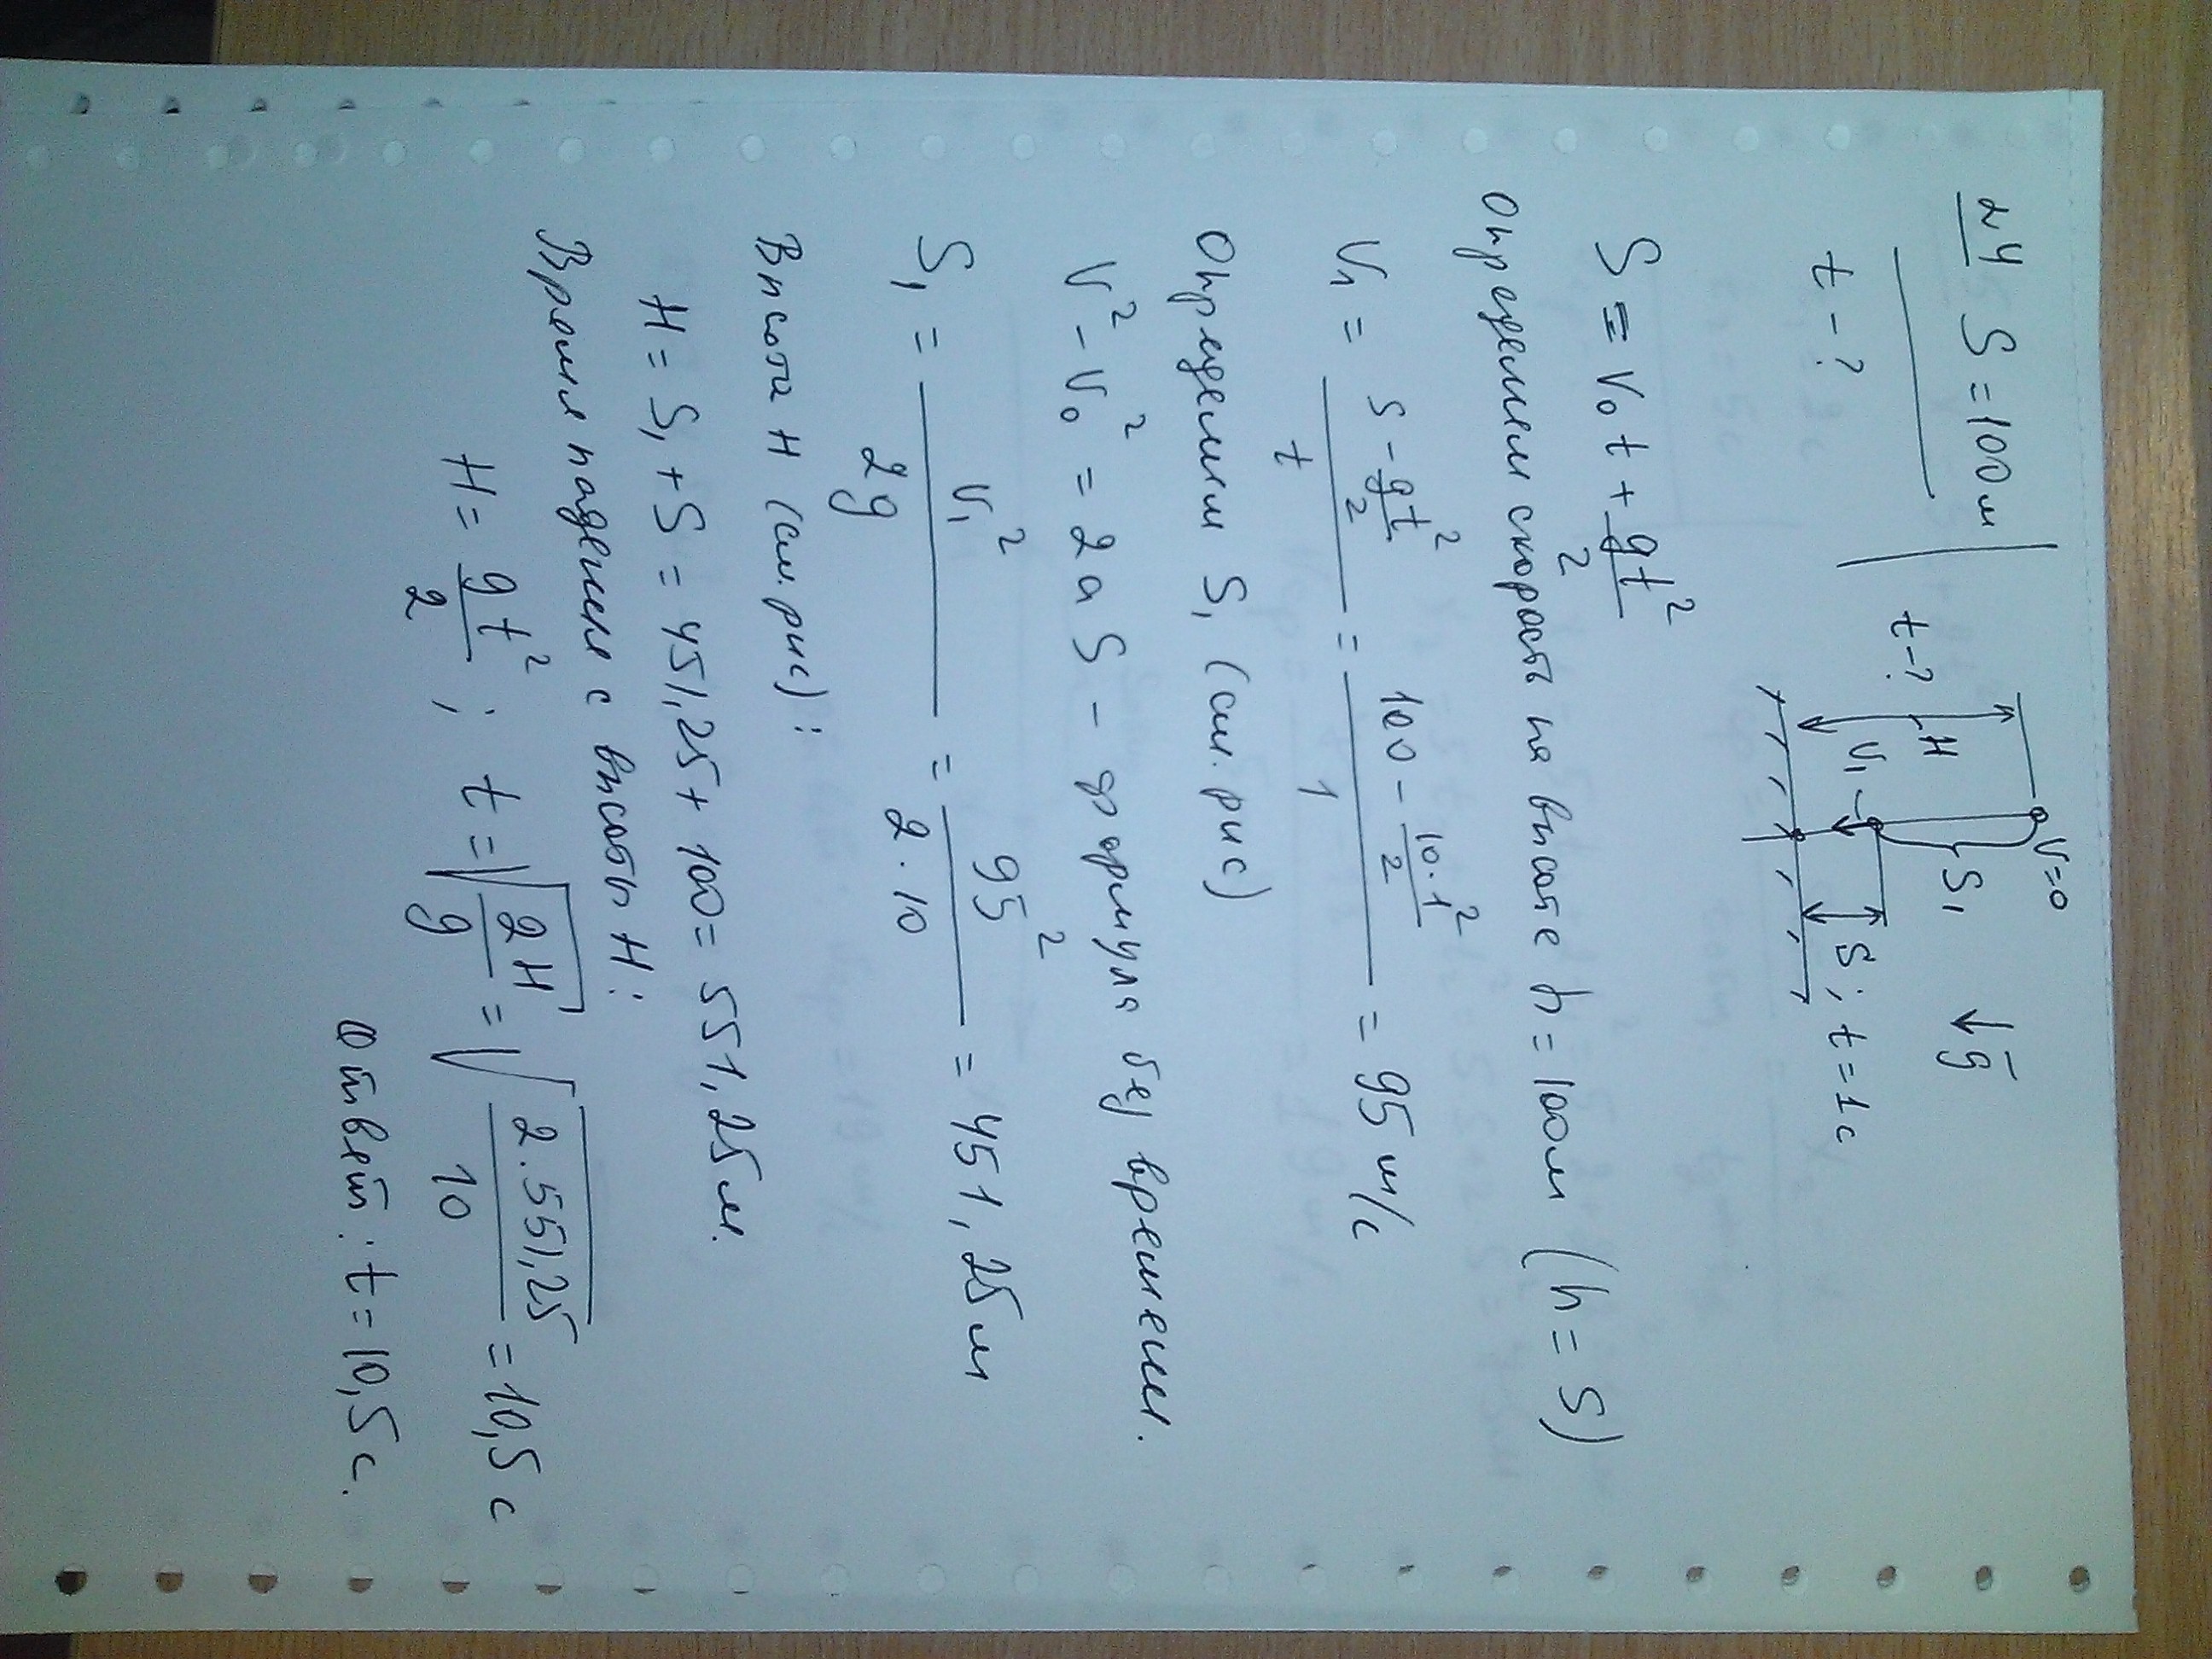 N4 S = 100м
t - ?
t - ?
H
V=0
S₁
V₁
S; t = 1с
g
S = V₀t + gt²/2
Определим скорость на высоте h = 100м (h = S)
V₁ = (S - gt²/2)/t = (100 - 10·1²/2)/1 = 95 м/с
Определим S₁ (см. рис)
V² - V₀² = 2aS - формула без времени.
S₁ = V₁²/2g = 95²/2·10 = 451,25м
Высота H (см. рис):
H = S₁ + S = 451,25 + 100 = 551,25м.
Время падения с высоты H:
H = gt²/2; t = √(2H/g) = √(2·551,25/10) = 10,5 с
Ответ: t = 10,5 с.